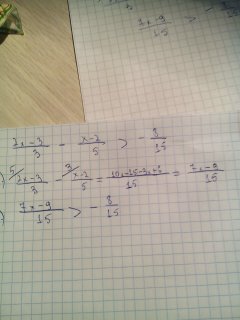 7x-9/15 > -
2x-3/3 - x-2/5 > - 8/15
) 5/ 2x-3/3 - 3/ x-2/5 = 10x-15-3x+6/15 = 7x-9/15
) 7x-9/15 > - 8/15